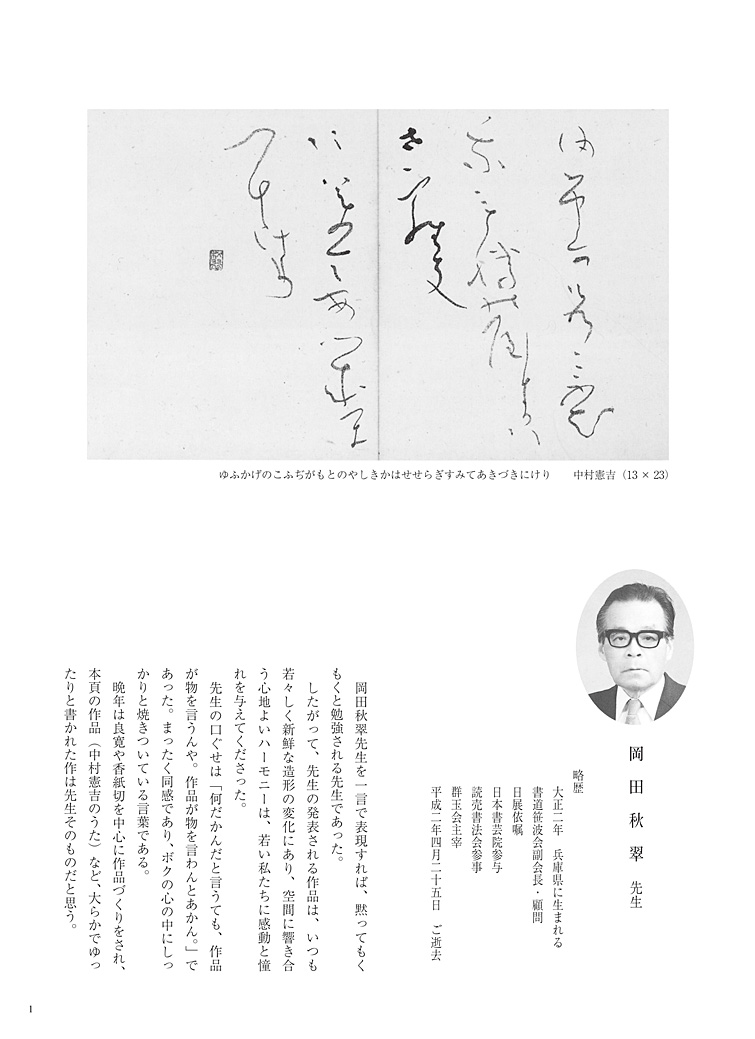 ゆふかげのこふぢがもとのやしきかはせせらぎすみてあきづきにけり　中村憲吉（13 × 23）
岡田秋翠 先生
略歴
大正二年　兵庫県に生まれる
書道笹波会副会長・顧問
日展依嘱
日本書芸院参与
読売書法会参事
群玉会主宰
平成二年四月二十五日　ご逝去
岡田秋翠先生を一言で表現すれば、黙ってもく
もくと勉強される先生であった。
したがって、先生の発表される作品は、いつも
若々しく新鮮な造形の変化にあり、空間に響き合
う心地よいハーモニーは、若い私たちに感動と憧
れを与えてくださった。
先生の口ぐせは「何だかんだと言うても、作品
が物を言うんや。作品が物を言わんとあかん。」で
あった。まったく同感であり、ボクの心の中にしっ
かりと焼きついている言葉である。
晩年は良寛や香紙切を中心に作品づくりをされ、
本頁の作品（中村憲吉のうた）など、大らかでゆっ
たりと書かれた作は先生そのものだと思う。
1